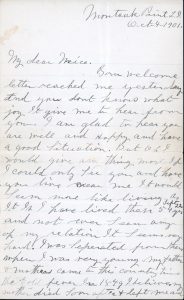 Montauk Point L.I
Oct. 4-1901.
My dear Neice.
Your welcome
letter reached me yesterday
and you dont know what
joy it give me to hear from
you I am glad to hear you
are well and happy and have
a good situation. But Oh I
would give any thing most if
I could only see you and have
you live near me It would
seem more like living
It is I have lived these years
and not ever seen any
of my relation It seems
hard. I was seperated from them
when I was very young. My father
& mother came to this country in
the fever in 1849 I believe
with died too after &